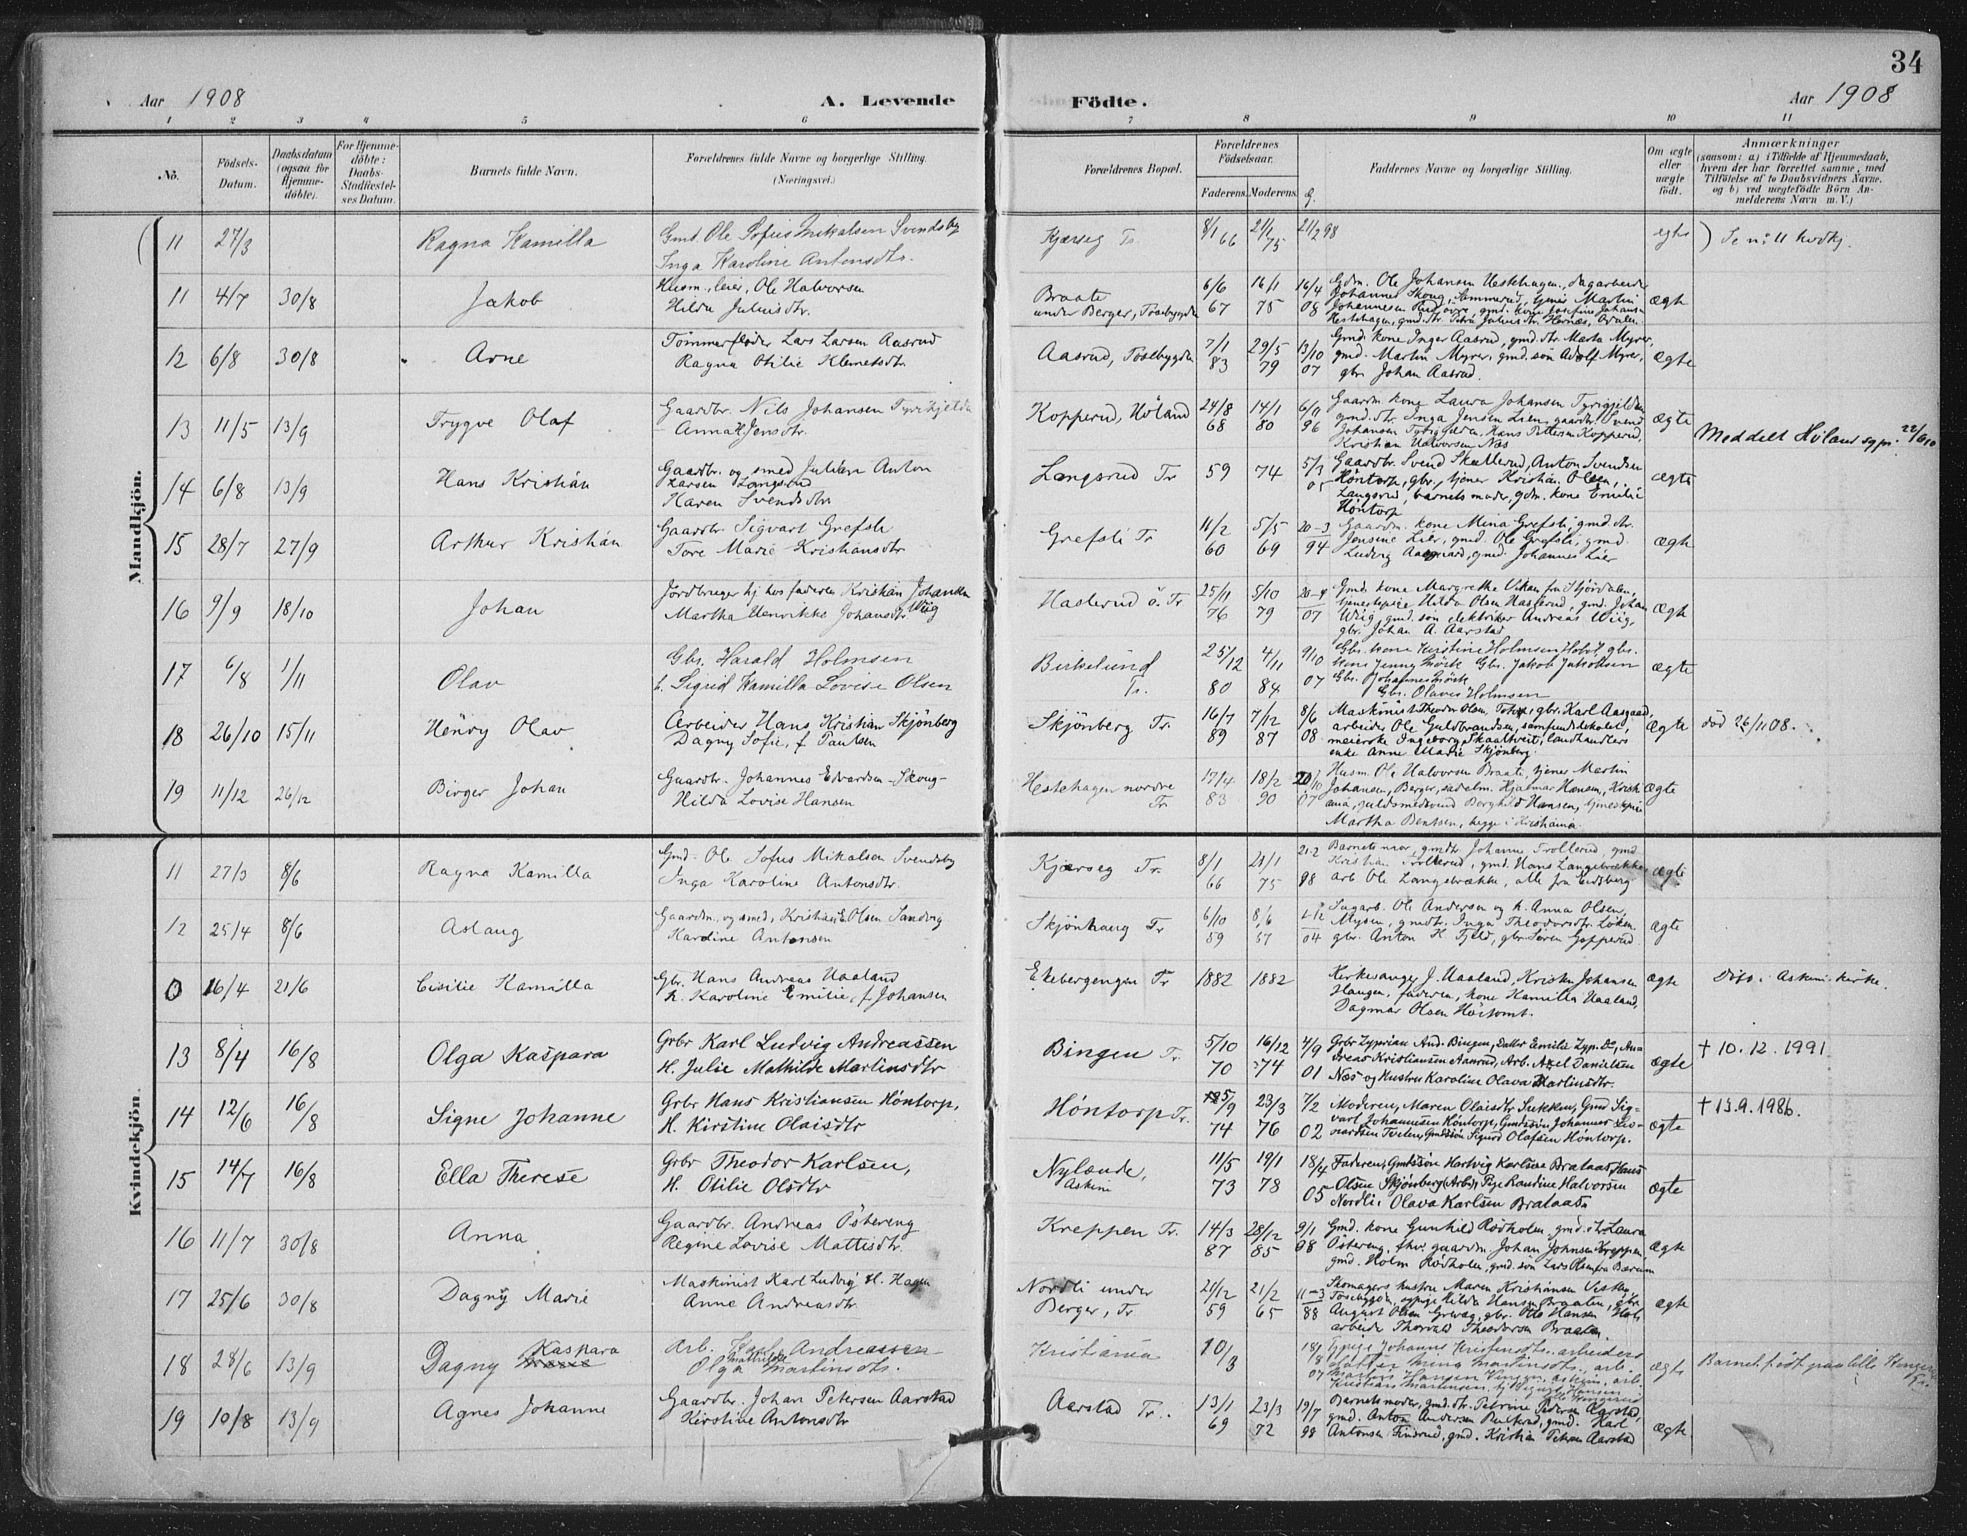 34
Aar 1908 A. Levende Födte. Aar 1908
1 2 3 4 5 6 7 8 9 10 11
No.
Födsels-Datum.
Daabsdatum (ogsaa for Hjemmedöbte).
For Hjemmedöbte: Daabs-Stadfæstelses Datum.
Barnets fulde Navn.
Forældrenes fulde Navne og borgerlige Stilling. (Næringsvei.)
Forældrenes Bopæl.
Forældrenes Födselsaar.
Faderens. Moderens.
Faddernes Navne og borgerlige Stilling.
Om ægte eller uægte födt.
Anmærkninger
(saasom: a) i Tilfælde af Hjemmedaab, hvem der har forrettet samme, med Tilföielse af to Daabsvidners Navne, og b) ved uægtefödte Börn Anmelderens Navn m. V.)
Mandkjön.
11 27/3 Ragna Kamilla
Gmd. Ole Sofus Mikalsen Svendsby
Inga Karoline Antonsdtr.
Kjærseg Tr. 8/1 66 21/1 75 21/2 98 ) Se nr. 11 kvdkj.
11 4/7 30/8 Jakob
Husm., leier, Ole Halvorsen
Hilda Juliusdtr.
Braate under Berger, Tosebygda 6/6 67 16/1 75 16/4 08
Gdm. Ole Johansen Hestehagen, dagarbeider
Johannes Skoug, Sommerud,
ægte
12 6/8 30/8 Arne
Tömmerfløder Lars Larsen Aasrud
Ragna Otilie Klemetsdtr.
Aasrud, Tosebygda 7/1 83 29/5 79 13/10 07
Gmd. kone Inger Aasrud, gmd. dtr. Marta Myrer,
gmd. Martin Myrer, gmd. søn Adolf Myrer,
gbr. Johan Aasrud.
ægte
13 11/5 13/9 Trygve Olaf
Gaardbr. Nils Johansen Tyrihjelden
Anna K. Jensdtr.
Kopperud, Höland 24/8 68 14/1 80 6/9 96
Gaardm. kone Laura Johansen
gmd. dtr. Inga Jensen Lien, gaardbr. Svend
Johansen Hans Pettersen Kopperud,
Kristian Halvorsen Næs
ægte Meddelt Höland sgpr. 22/6 10
14 6/8 13/9 Hans Kristian
Gaardbr. og smed Julian Anton
Larsen Langsrud
Karen Svendsdtr.
Langsrud Tr 59 74 5/3 05
Gaardbr. Svend Skallerud, Anton Svendsen
Höntorp, gbr., tjener Kristian Olsen,
Langsrud, barnets moder, gdm. kone Emilie
Höntorp
ægte
15 28/7 27/9 Arthur Kristian
Gaardbr. Sigvart Grefsli
Tore Marie Kristiansdtr
Grefsli Tr 11/2 60 5/5 69 20-3 94
Gaardm. kone Mina Grefsli, gmd. dtr.
Jensine Lier, gmd. Ole Grefsli, gmd.
Ludvig Aasgaard, gmd. Johannes Lier
ægte
16 9/9 18/10 Johan
Jordbruger hj. hos faderen Kristian Johansen Wiig
Martha Henrikke Johansdtr
Haslerud ö. Tr 25/11 76 5/10 79 20-4 07
Gmd. kone Margrethe Viken fra Stjørdalen,
tjenestepige Hilda Olsen Haslerud, gmd. Johan
Wiig, gmd. søn elektriker Andreas Wiig,
gbr. Johan A. Aarstad
ægte
17 6/8 1/11 Olav
Gbr. Harald Holmsen
h. Sigrid Kamilla Lovise Olsen
Birkelund Tr. 25/12 80 4/11 84 9/10 07
Gbr. kone Kirstine Holmsen Gbr.
kone Jenny Gbr. Jakob Jakobsen
Gbr. Johannes
Gbr. Olaves Holmsen
ægte
18 26/10 15/11 Henry Olav
Arbeider Hans Kristian Skjönberg
Dagny Sofie, f. Paulsen
Skjönberg Tr. 16/7 89 7/12 87 8/6 08
Maskinist Theodor Olsen gbr. Karl Aasgaard,
arbeider Ole Guldbrandsen,
meierske Ingeborg Skaaltveit, landhandlers
enke Anne Marie Skjönberg
ægte död 26/11 08.
19 11/12 26/12 Birger Johan
Gaardbr. Johannes Edvardsen Skoug
Hilda Lovise Hansen
Hestehagen nordre Tr 17/4 83 18/2 90 20/10 07
Husm. Ole Halvorsen Braate, tjener Martin
Johansen, Berger, sadelm. Hjalmar Hansen, Kristiania,
guldsmedsvend Borghild Hansen, tjenestepige
Martha Bentsen, begge i Kristiania
ægte
Kvindekjön.
11 27/3 8/6 Ragna Kamilla
Gmd. Ole Sofus Mikalsen Svendsby
Inga Karoline Antonsdtr.
Kjærseg Tr. 8/1 66 21/1 75 21-2 98
Barnets mor, gmdtr. Johanne Trollerud, gmd.
Kristian Trollerud, gmd. Hans Langebrække
arb Ole Langebrække, alle fra Eidsberg
ægte
12 25/4 8/6 Aslaug
Gaardm. og smed, Kristian E. Olsen Sandvig
Karoline Antonsen
Skjönhaug Tr 6/10 59 8/6 04
Sagarb. Ole Andersen og k. Anna Olsen,
Mysen, gmdtr. Inga Theodorsdtr. Løken
gbr. Anton H. Fjeld, gbr. Søren Gopperud
ægte
0 16/4 21/6 Cicilie Kamilla
Gbr. Hans Andreas Aaland
h. Karoline Emilie, f. Johansen
Ekebergengen Tr 1882 1882
Kirkesanger J. Aaland, Kristen Johansen
Haugen, faderen, kone Kamilla Aaland,
Dagmar Olsen Høitomt.
ægte Döbt i Askim kirke.
13 8/4 16/8 Olga Kaspara
Grbr Karl Ludvig Andreassen
H. Julie Mathilde Martinsdtr
Bingen Tr. 5/10 70 16/12 74 4/9 01
Grbr Zyprian And. Bingen, Datter Emilie Zyp. Do, Andreas
Kristiansen Aamrud, Arb. Axel Danielsen
Næs og Hustru Karoline Olava Martinsdtr.
ægte † 10.12.1991
14 12/6 16/8 Signe Johanne
Grbr Hans Kristiansen Höntorp,
H. Kirstine Olaisdtr
Höntorp Tr. 25/9 74 23/3 76 7/2 02
Moderen, Maren Olaisdtr Sukken, Gmd Sigvart
Johannesen Höntorp, Gmdssön Johannes
Gmdssön Sigurd Olafsen Höntorp.
ægte † 13.9.1986.
15 14/7 16/8 Ella Therese
Grbr Theodor Karlsen,
H. Otilie Olsdtr
Nylænde, Askim 11/5 73 19/1 78 18/4 05
Faderen, Gmdssön Hartvig Karlsen Brataas, Hans
Olsen Skjönberg (Arb), Pige Randine Halvorsen
Nordli, Olava Karlsen Brataas
ægte
16 11/7 30/8 Anna
Gaardbr. Andreas Östereng
Regine Lovise Mattisdtr.
Kreppen Tr. 14/3 87 28/12 85 9/1 08
Gmd. kone Gunhild Rödholm, gmd. dtr. Laura
Östereng, fhv. gaardm. Johan Johnsen Kreppen
gmd. Holm Rödholm, gmd. søn Lars Olsen fra Bærum
ægte
17 25/6 30/8 Dagny Marie
Maskinist Karl Ludvig H. Hagen
Anne Andreasdtr.
Nordli under Berger, Tr 21/12 59 21/2 65 11-3 88
Skomagers hustru Maren Kristiansen
Tosebygda, sypige Hilda Hansen Braaten, gbr.
August Olsen gbr. Otto Hansen
arbeide Thorvald Theodorsen Braaten.
ægte
18 28/6 13/9 Dagny Kaspara
Arb. Karl Andreassen
Olga Mathilde Martinsdtr.
Kristiania
Sypige Johanne Kristinsdtr. arbeiders
datter Mina Martinsdtr. arb.
ægte Barnet födt paa lille
19 10/8 13/9 Agnes Johanne
Gaardbr. Johan Petersen Aarstad
Kirstine Antonsdtr
Aarstad Tr. 13/1 69 23/3 72 19/7 98
Barnets moder, gmd. dtr. Petrine Pedersen Aarstad,
gmd. Anton Andersen gmd. Karl
Antonsen Finsrud, gmd. Kristian Petersen Aarstad
ægte